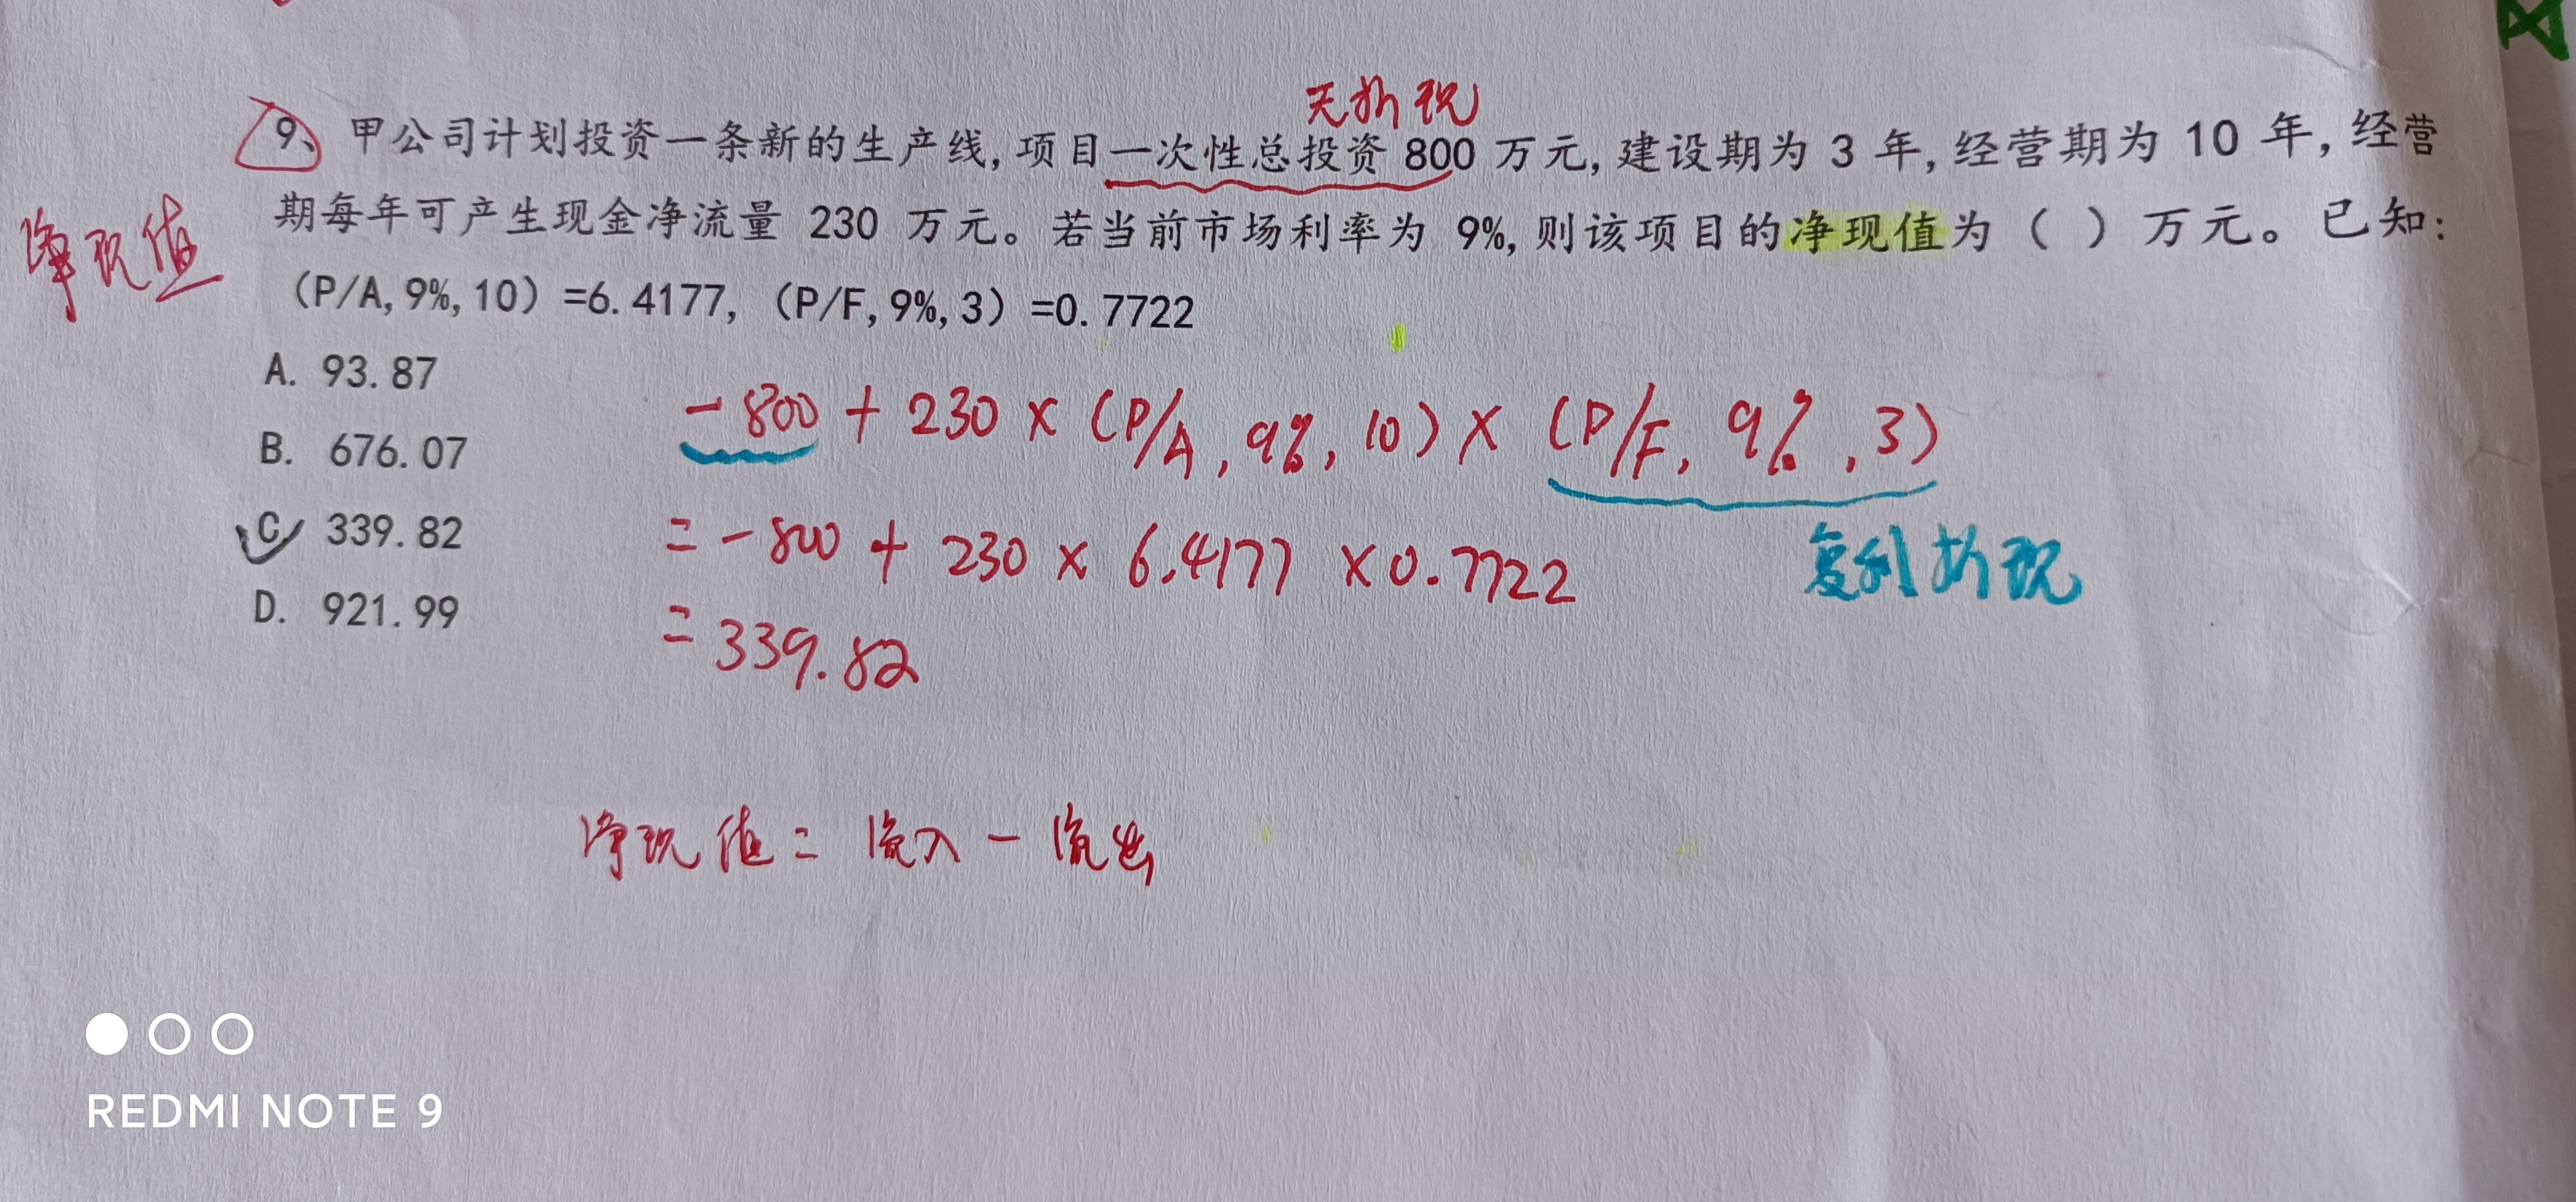 无折现
9、甲公司计划投资一条新的生产线,项目一次性总投资 800 万元,建设期为 3 年,经营期为 10 年,经营
期每年可产生现金净流量 230 万元。若当前市场利率为 9%,则该项目的净现值为( )万元。已知:
净现值
（P/A,9%,10）=6.4177,（P/F,9%,3）=0.7722
A. 93.87
B. 676.07
C 339.82
D. 921.99
-800 + 230 × (P/A, 9%, 10) × (P/F, 9%, 3)
= -800 + 230 × 6.4177 × 0.7722
复利折现
= 339.82
净现值 = 流入 - 流出
REDMI NOTE 9